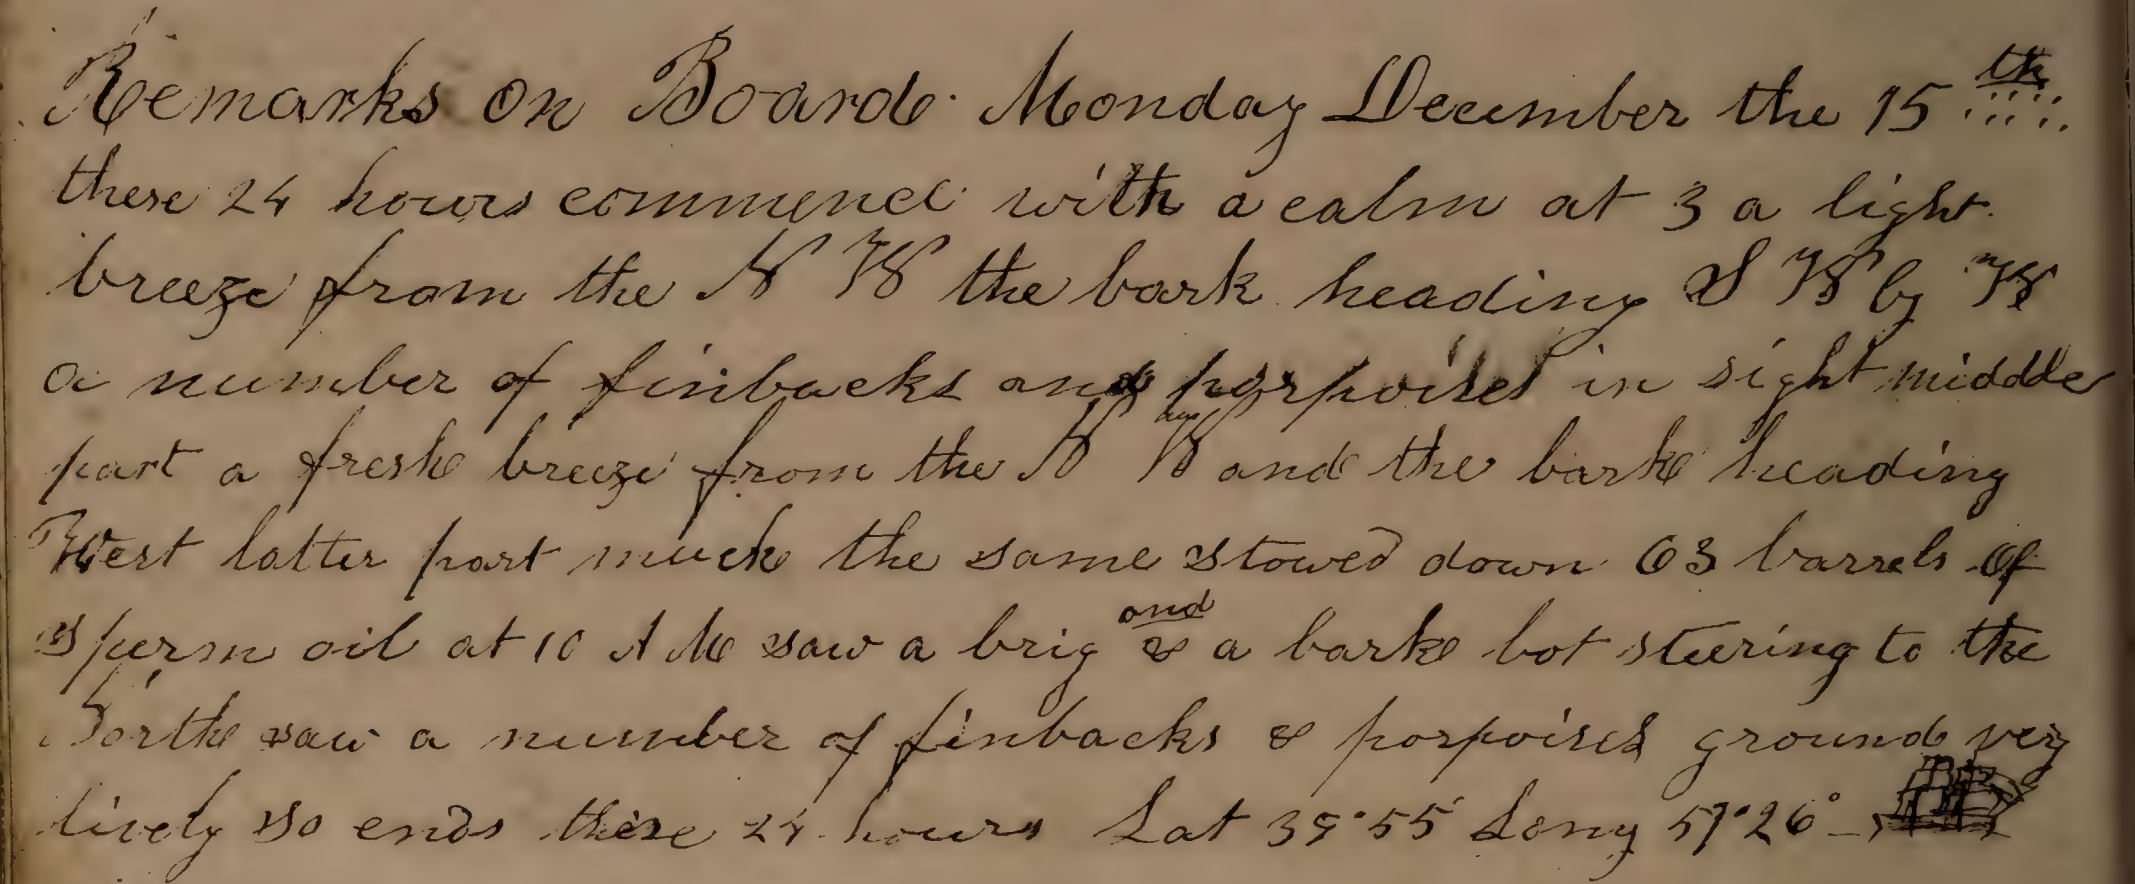 Remarks on Board Monday December the 15th
these 24 hours commence with a calm at 3 a light
breeze from the N W the bark heading S W by W
a number of finbacks and porpoises in sight middle
part a fresh breeze from the N W and the bark heading
West latter part much the same stowed down 63 barrels of
sperm oil at 10 A M saw a brig and & a bark bot steering to the
North saw a number of finbacks & porpoises ground very
lively so ends these 24 hours Lat 39°55 Long 57°26